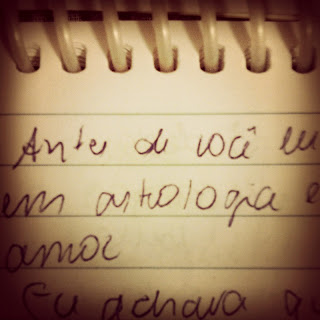 Antes de você eu
em astrologia e
amor
Eu achava q